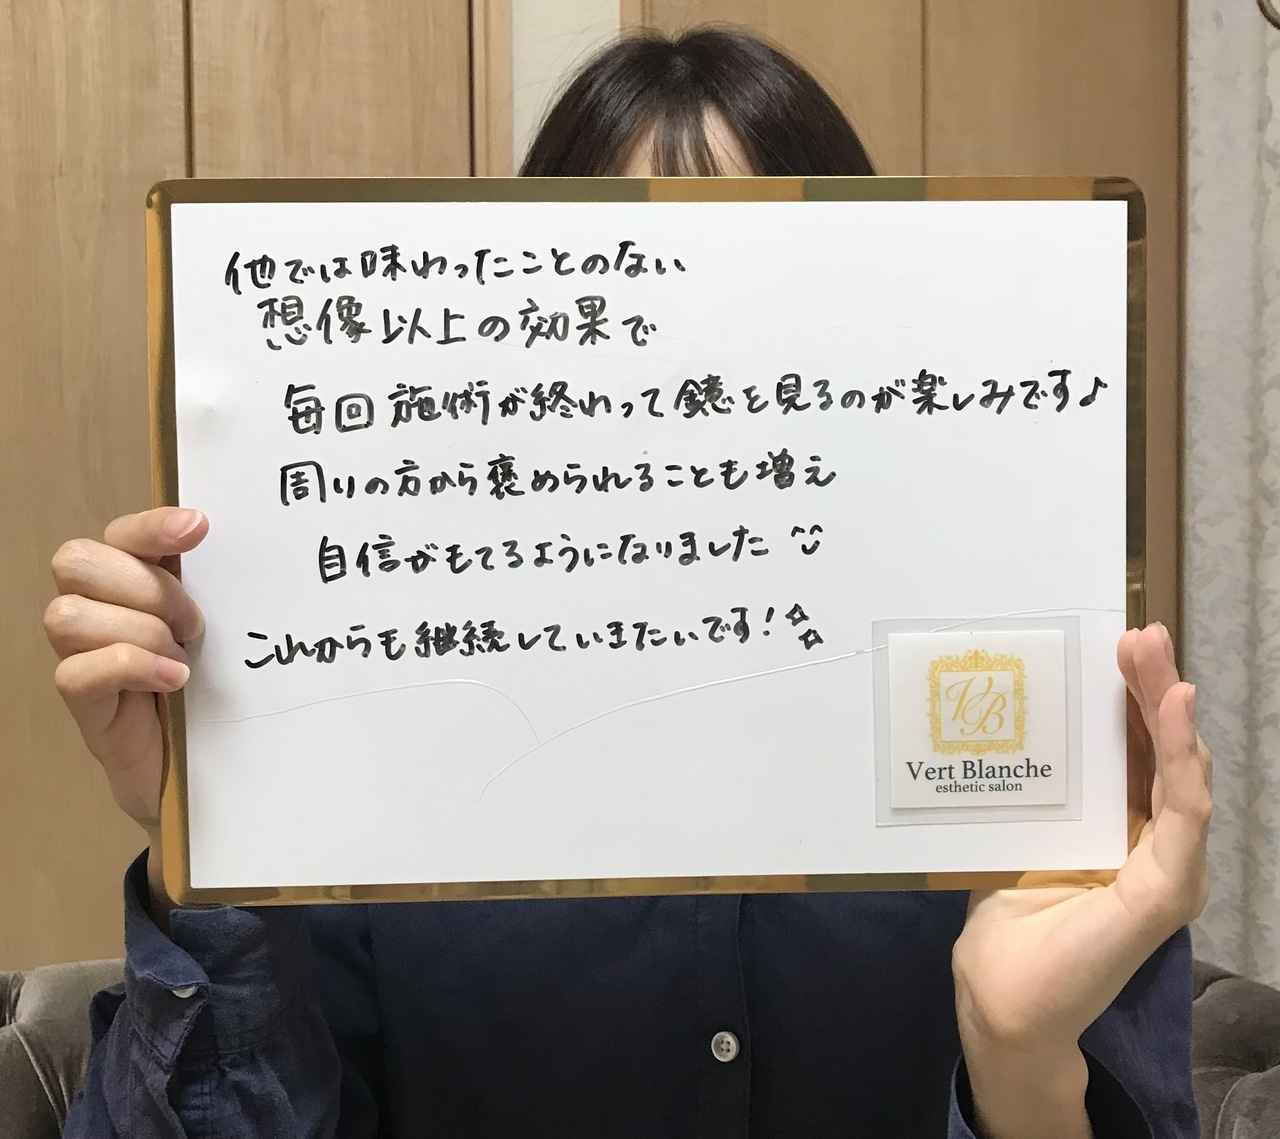 他では味わったことのない
想像以上の効果で
毎回施術が終わって鏡を見るのが楽しみです♪
周りの方から褒められることも増え
自信がもてるようになりました
これからも継続していきたいです!
VB
Vert Blanche
esthetic salon